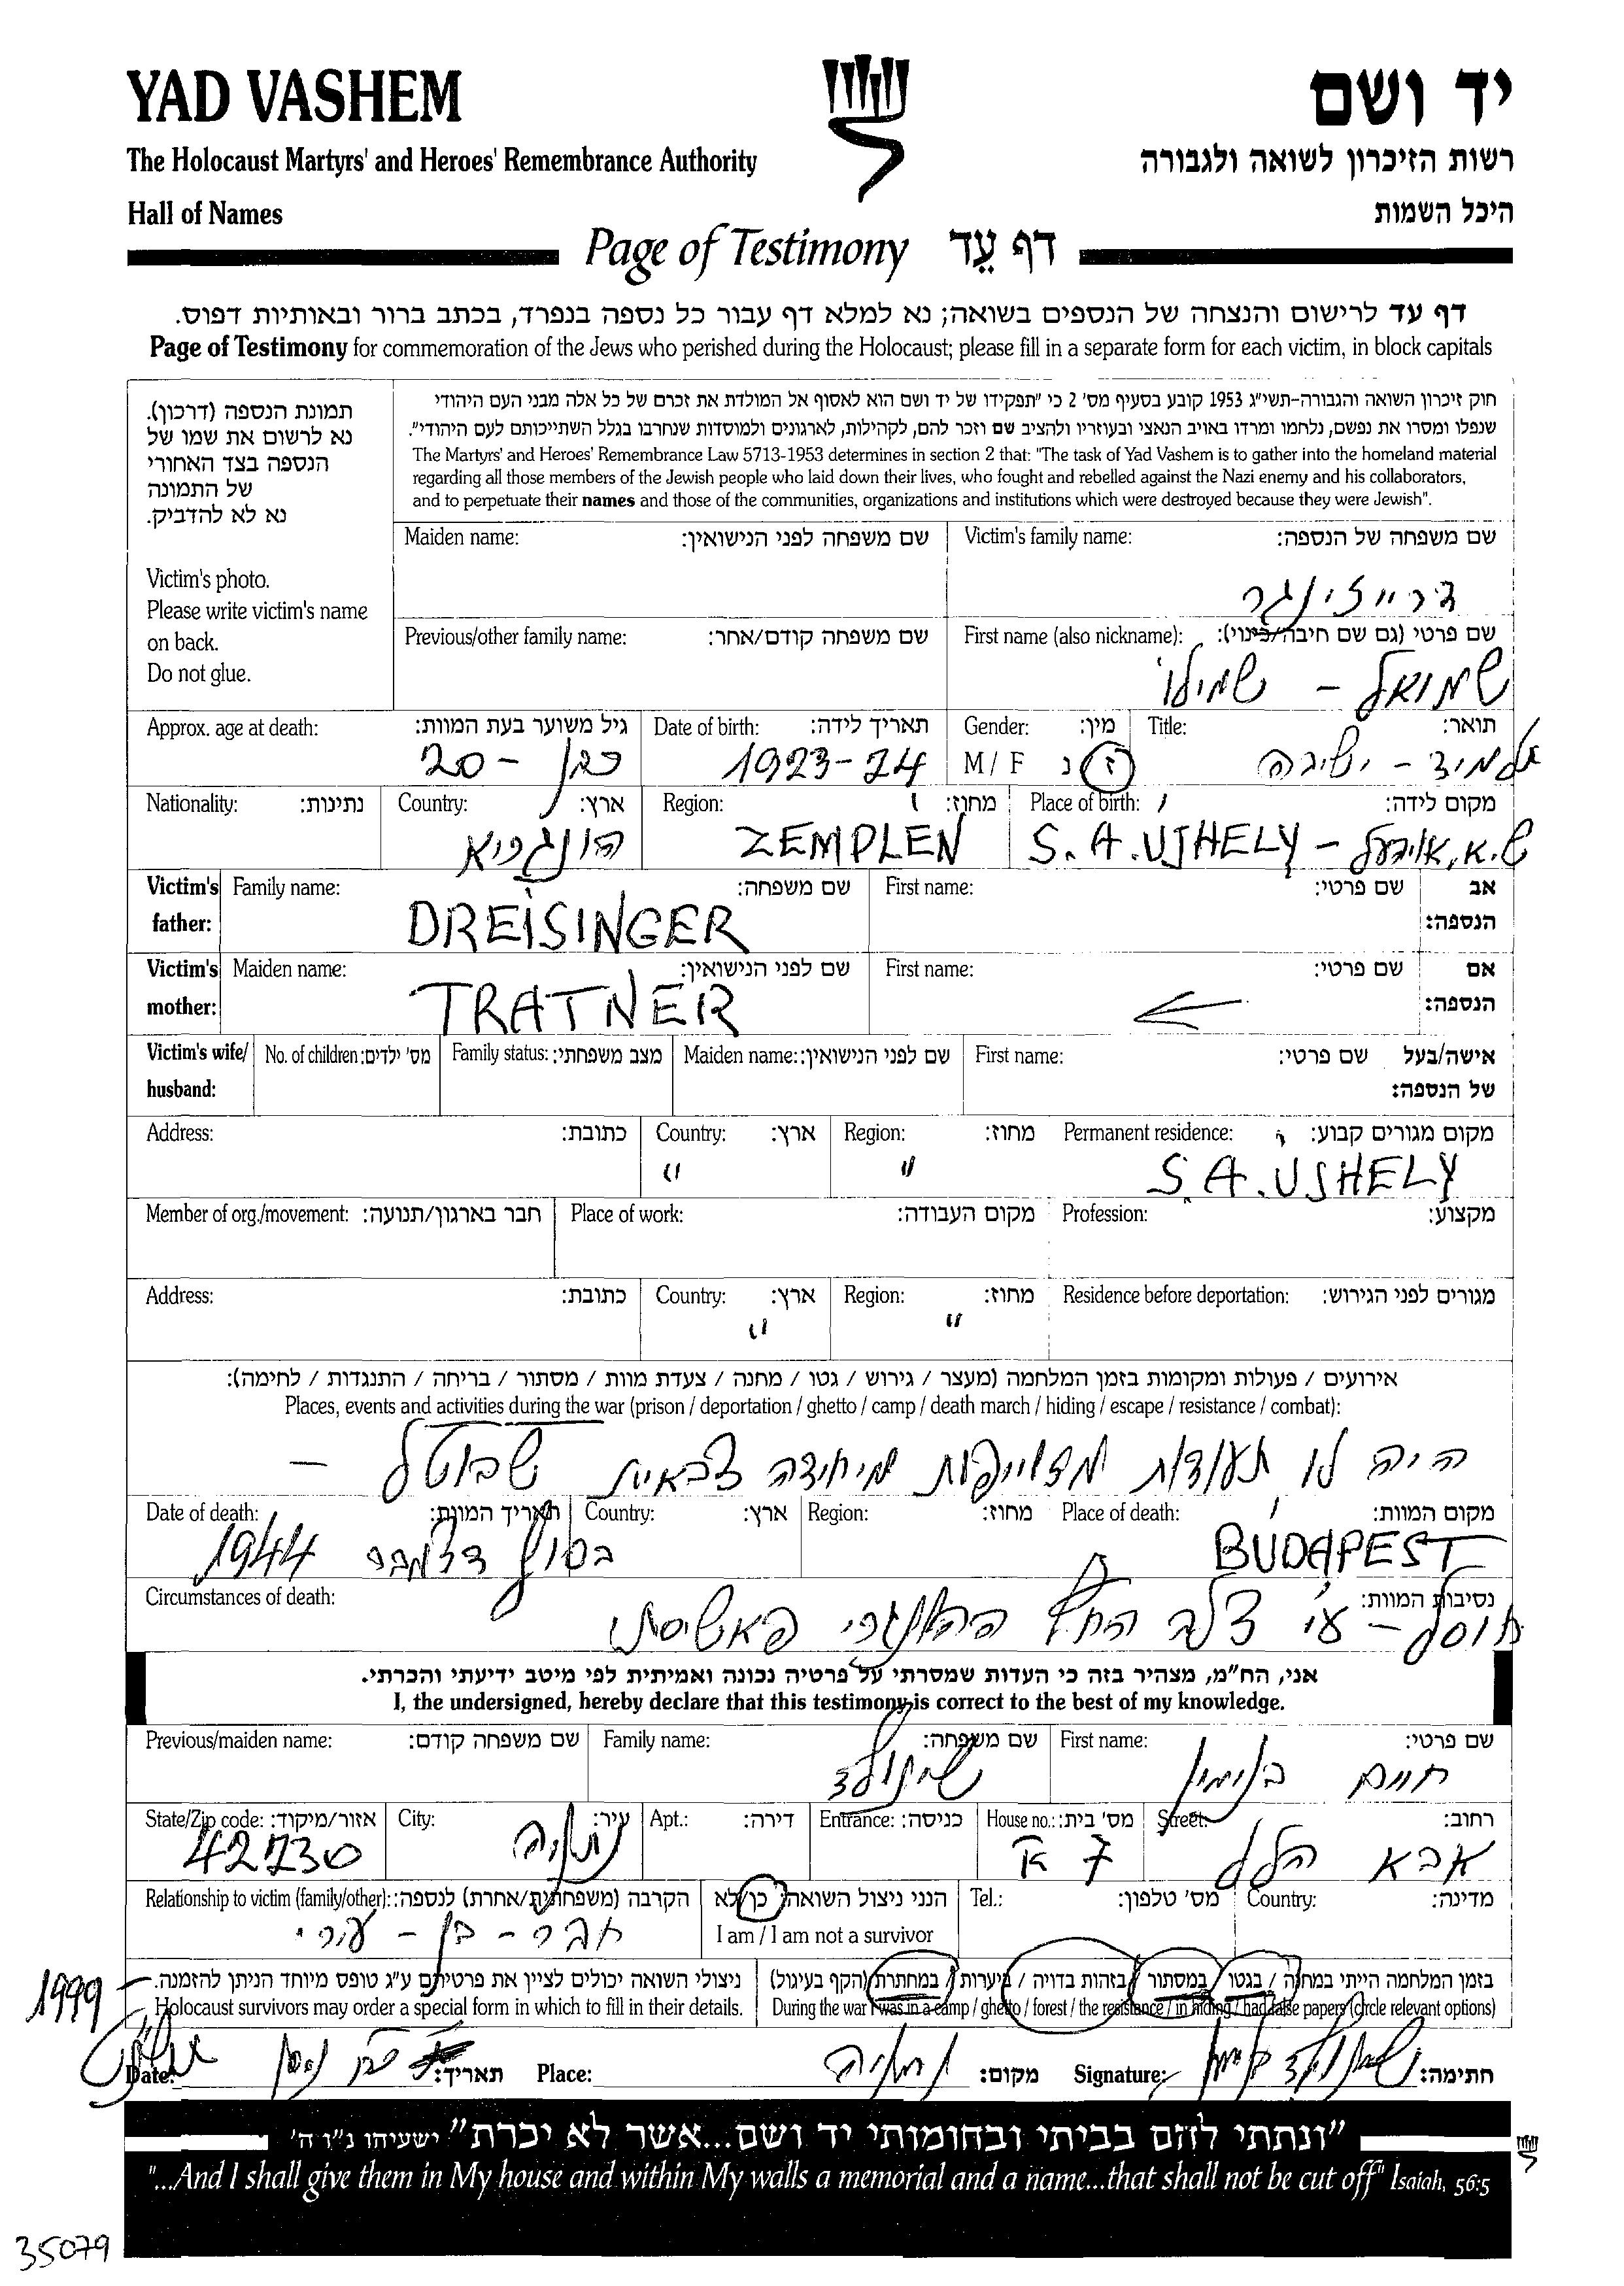 YAD VASHEM
יד ושם
The Holocaust Martyrs' and Heroes' Remembrance Authority
רשות הזיכרון לשואה ולגבורה
Hall of Names
היכל השמות
Page of Testimony דף עֵד
דף עד לרישום והנצחה של הנספים בשואה; נא למלא דף עבור כל נספה בנפרד, בכתב ברור ובאותיות דפוס.
Page of Testimony for commemoration of the Jews who perished during the Holocaust; please fill in a separate form for each victim, in block capitals
תמונת הנספה (דרכון).
נא לרשום את שמו של
הנספה בצד האחורי
של התמונה
נא לא להדביק.
Victim's photo.
Please write victim's name
on back.
Do not glue.
חוק זיכרון השואה והגבורה-תשי"ג 1953 קובע בסעיף מס' 2 כי "תפקידו של יד ושם הוא לאסוף אל המולדת את זכרם של כל אלה מבני העם היהודי
שנפלו ומסרו את נפשם, נלחמו ומרדו באויב הנאצי ובעוזריו ולהציב שם וזכר להם, לקהילות, לארגונים ולמוסדות שנחרבו בגלל השתייכותם לעם היהודי".
The Martyrs' and Heroes' Remembrance Law 5713-1953 determines in section 2 that: "The task of Yad Vashem is to gather into the homeland material
regarding all those members of the Jewish people who laid down their lives, who fought and rebelled against the Nazi enemy and his collaborators,
and to perpetuate their names and those of the communities, organizations and institutions which were destroyed because they were Jewish".
Maiden name: שם משפחה לפני הנישואין: Victim's family name: שם משפחה של הנספה:
דרייזינגר
Previous/other family name: שם משפחה קודם/אחר: First name (also nickname): שם פרטי (גם שם חיבה/כינוי):
שמואל - שמילו
Approx. age at death: גיל משוער בעת המוות: Date of birth: תאריך לידה: Gender: מין: Title: תואר:
כבן - 20 1923-24 M / F ז נ תלמיד - ישיבה
Nationality: נתינות: Country: ארץ: Region: מחוז: Place of birth: מקום לידה:
הונגריא ZEMPLEN S.A.UJHELY - ש.א.אויהעל
Victim's father: Family name: שם משפחה: First name: שם פרטי: אב הנספה:
DREISINGER
Victim's mother: Maiden name: שם לפני הנישואין: First name: שם פרטי: אם הנספה:
TRATNER
Victim's wife/ husband: No. of children: מס' ילדים: Family status: מצב משפחתי: Maiden name: שם לפני הנישואין: First name: שם פרטי: אישה/בעל של הנספה:
Address: כתובת: Country: ארץ: Region: מחוז: Permanent residence: מקום מגורים קבוע:
" " S.A.UJHELY
Member of org./movement: חבר בארגון/תנועה: Place of work: מקום העבודה: Profession: מקצוע:
Address: כתובת: Country: ארץ: Region: מחוז: Residence before deportation: מגורים לפני הגירוש:
" "
אירועים / פעולות ומקומות בזמן המלחמה (מעצר / גירוש / גטו / מחנה / צעדת מוות / מסתור / בריחה / התנגדות / לחימה):
Places, events and activities during the war (prison / deportation / ghetto / camp / death march / hiding / escape / resistance / combat):
היה לו תעודות מזוייפות מיחידה צבאית שבוטל -
Date of death: תאריך המוות: Country: ארץ: Region: מחוז: Place of death: מקום המוות:
בסוף דצמבר 1944 BUDAPEST
Circumstances of death: נסיבות המוות:
חוסל - ע"י צלב החץ ההונגרי פאשיסטי
אני, הח"מ, מצהיר בזה כי העדות שמסרתי על פרטיה נכונה ואמיתית לפי מיטב ידיעתי והכרתי.
I, the undersigned, hereby declare that this testimony is correct to the best of my knowledge.
Previous/maiden name: שם משפחה קודם: Family name: שם משפחה: First name: שם פרטי:
חיים בנימין
State/Zip code: אזור/מיקוד: City: עיר: Apt.: דירה: Entrance: כניסה: House no.: מס' בית: Street: רחוב:
42730 נתניה 7 א אבא הלל
Relationship to victim (family/other): הקרבה (משפחתית/אחרת) לנספה: הנני ניצול השואה: כן/לא Tel.: מס' טלפון: Country: מדינה:
חבר - בן - עירי I am / I am not a survivor
ניצולי השואה יכולים לציין את פרטיהם ע"ג טופס מיוחד הניתן להזמנה. בזמן המלחמה הייתי במחנה / בגטו / במסתור / בזהות בדויה / ביערות / במחתרת (הקף בעיגול)
Holocaust survivors may order a special form in which to fill in their details. During the war I was in a camp / ghetto / forest / the resistance / in hiding / had false papers (circle relevant options)
1999
Date: תאריך: Place: נתניה מקום: Signature: חתימה:
"ונתתי להם בביתי ובחומותי יד ושם...אשר לא יכרת" ישעיהו נ"ו ה'
"...And I shall give them in My house and within My walls a memorial and a name...that shall not be cut off" Isaiah, 56:5
35079